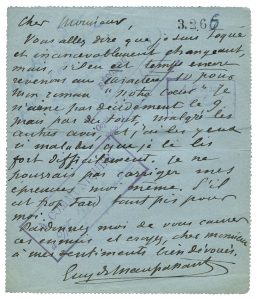 3266
Cher Monsieur,
Vous allez dire que je suis toqué
et inconcevablement changeant
mais, s'il en est temps encore
revenons au caractère 10 pour
mon roman "Notre Cœur". Je
n'aime pas décidément le 9,
mais pas du tout, malgré les
autres avis, et j'ai les yeux
si malades que je le lis
fort difficilement. Je ne
pourrais pas corriger mes
épreuves moi même. S'il
est trop tard tant pis pour
moi.
Pardonnez moi de vous causer
ces ennuis et croyez, cher monsieur
à mes sentiments bien dévoués.
Guy de Maupassant